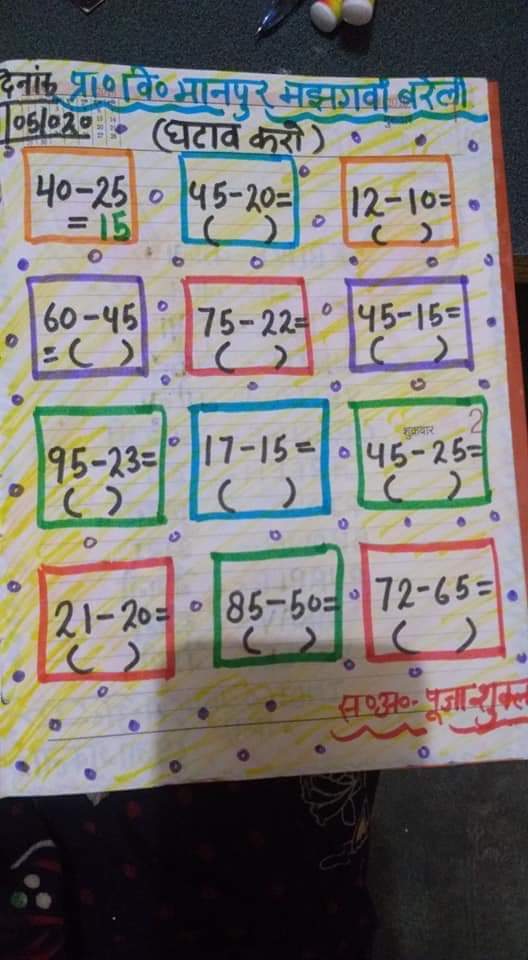 दिनांक प्रा० वि० मानपुर मझगवाँ बरेली
05/020
(घटाव करो)
40-25 = 15
45-20= ( )
12-10= ( )
60-45 = ( )
75-22= ( )
45-15= ( )
95-23= ( )
17-15= ( )
शुक्रवार 2
45-25= ( )
21-20= ( )
85-50= ( )
72-65= ( )
स०अ०- पूजा शुक्ल